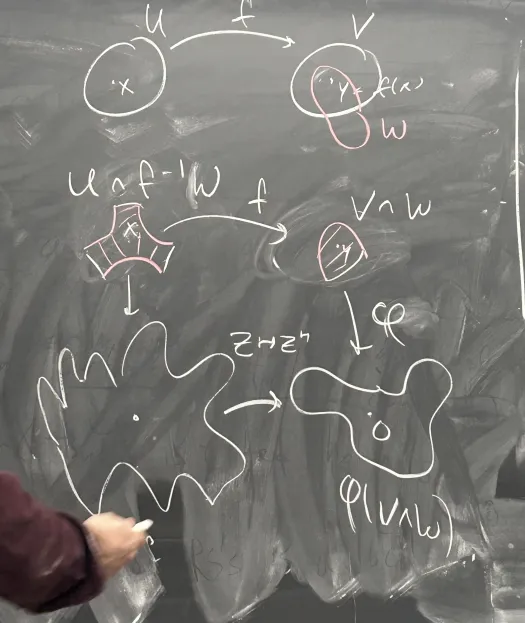 U f V
x y = f(x)
W
U ∩ f⁻¹W f V ∩ W
x y
φ
z ↦ zⁿ
0
φ(V∩W)